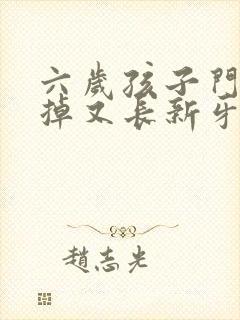 六歲孩子門
掉又長新牙
趙志光